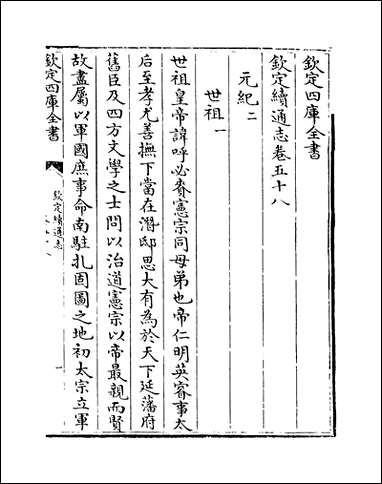 欽定四庫全書
欽定續通志卷五十八
元紀二
世祖一
世祖皇帝諱呼必賚憲宗同母弟也帝仁明英睿事太
后至孝尤善撫下當在潛邸思大有為於天下延藩府
舊臣及四方文學之士問以治道憲宗以帝最親而賢
故盡屬以軍國庶事命南駐扎固圖之地初太宗立軍
欽定四庫全書
欽定續通志
一